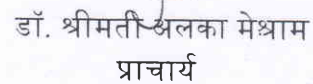 डॉ. श्रीमती अलका मेश्राम
प्राचार्य